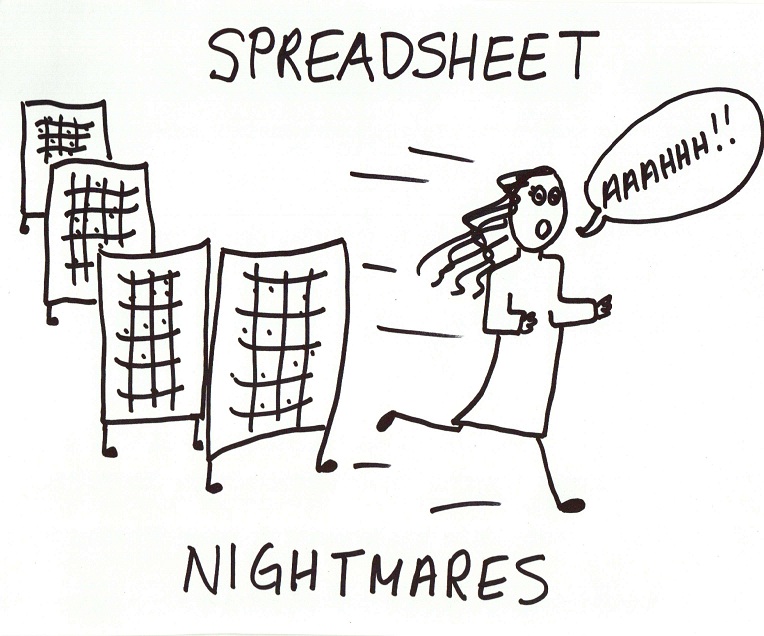 SPREADSHEET
AAAHHH!!
NIGHTMARES